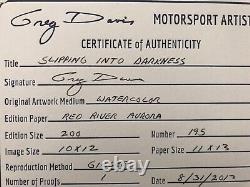 Greg Davis MOTORSPORT ARTIST
CERTIFICATE of AUTHENTICITY
Title SLIPPING INTO DARKNESS
Signature Greg Davis
Original Artwork Medium WATERCOLOR
Edition Paper RED RIVER AURORA
Edition Size 200 Number 195
Image Size 10X12 Paper Size 11X13
Reproduction Method
Number of Proofs 1 Date 8/31/2017